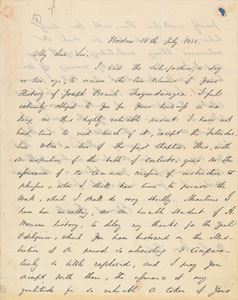 Boston 18th July 1838.
My dear Sir,
I had the satisfaction, a day
or two ago, to receive the two volumes of your
History of Joseph Brant - Thayendanegea. I feel
extremely obliged to you for your kindness in ma-
king me this highly valuable present. I have not
had time to read much of it, except the Introduc-
tion & two of the first Chapters. This, with
an inspection of the table of contents, gives me the
assurance of no common measure of instruction &
pleasure, when I shall have time to peruse the
work, which I shall do very shortly. Meantime I
have been unwilling, as an humble student of A-
merican history, to delay my thanks for the
diligence, which has been bestowed on the illus-
tration of a period so interesting & compara-
tively so little explored, and I pray you
accept with them, the assurance of my
gratitude for so valuable a token of your